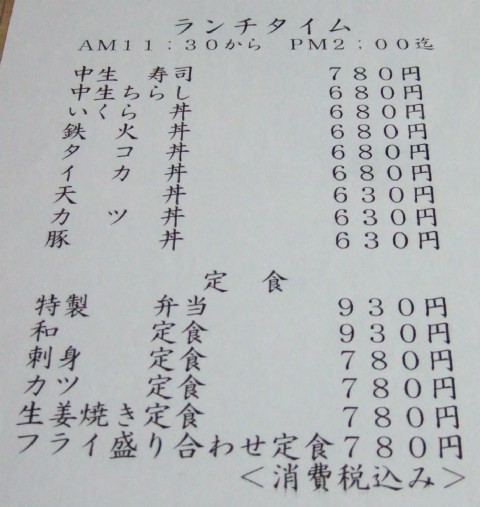 ランチタイム
AM11:30から PM2:00迄
中生 寿司 780円
中生ちらし 680円
いくら丼 680円
鉄火丼 680円
タコ丼 680円
イカ丼 680円
天丼 630円
カツ丼 630円
豚丼 630円
定食
特製 弁当 930円
和 定食 930円
刺身 定食 780円
カツ 定食 780円
生姜焼き定食 780円
フライ盛り合わせ定食780円
＜消費税込み＞